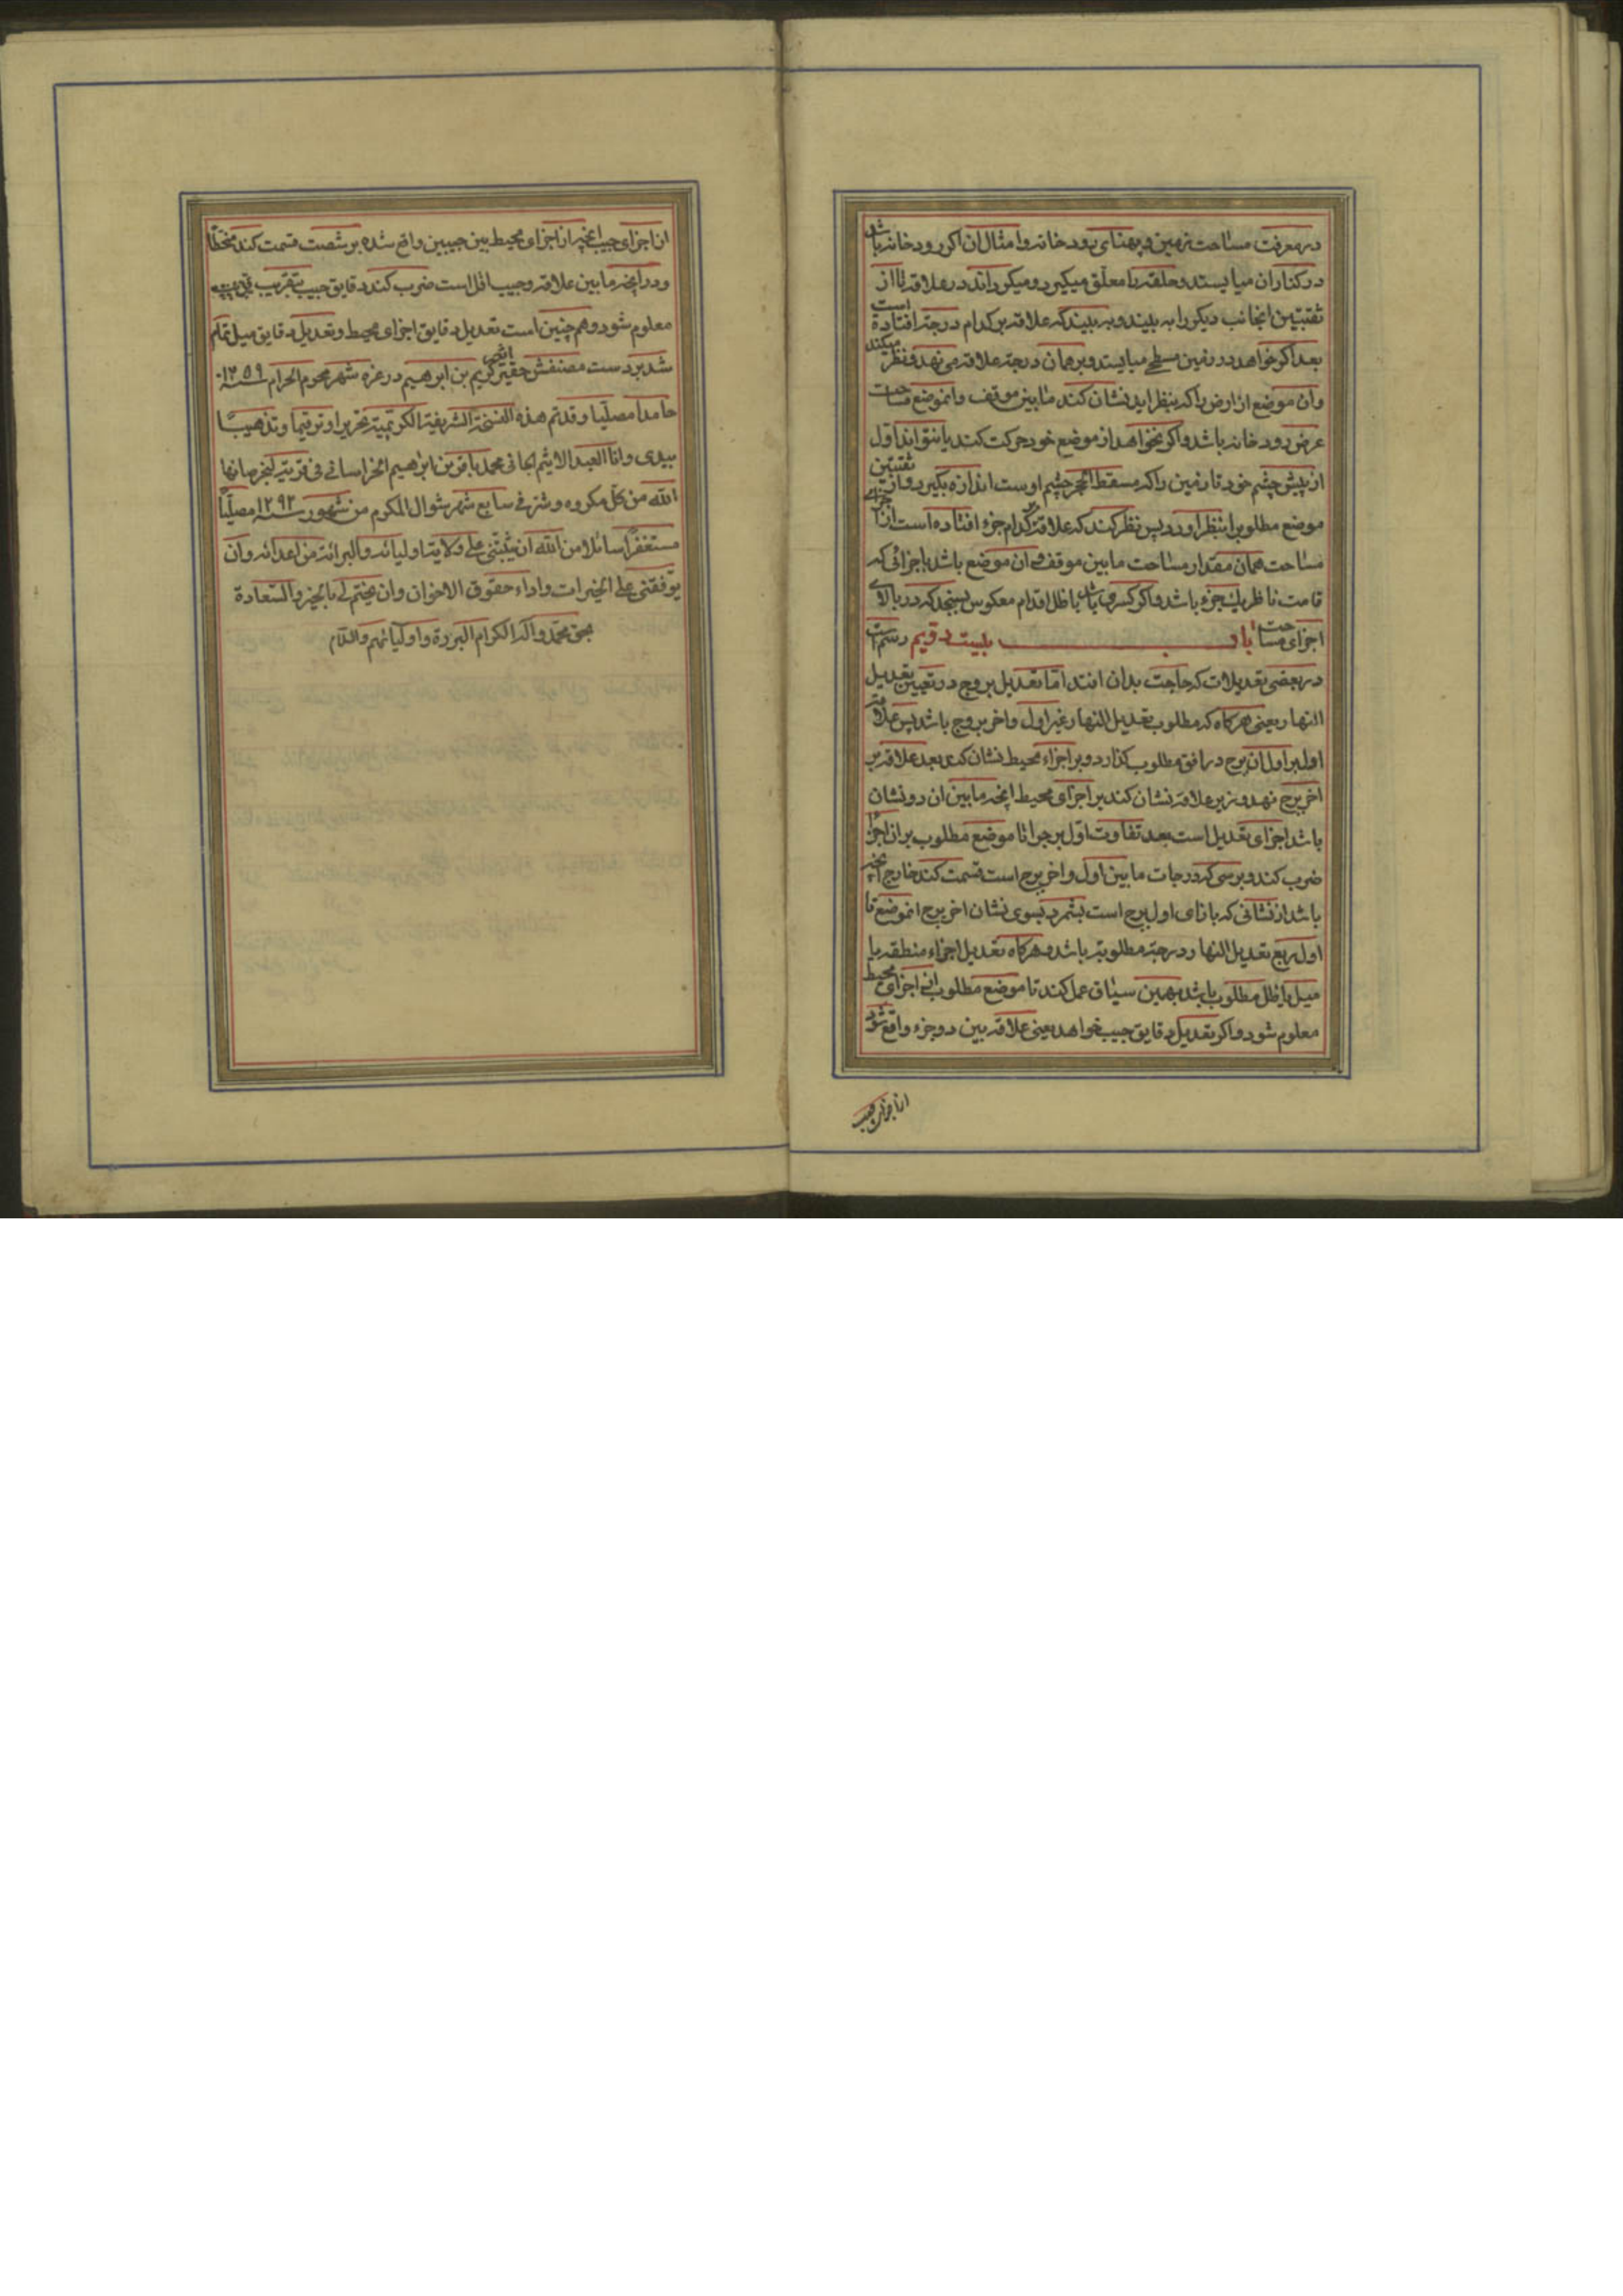 در معرفت مساحت زمین و پهنای رودخانه وامثال ان اگر رودخانه باشد
در کنار ان میایستد و حلقه را معلق میگیرد و میگرداند در علاقه تا از
ثقبتین انجانب دیگر را به بیند و به بیند که علاقه بر کدام درجه افتاده است
بعد اگر خواهد در زمین مسطحی میایستد و بر همان درجه علاقه می نهد و نظر میکند
وان موضع از ارض را که بنظر اید نشان کند ما بین موقف وانموضع مساحت
عرض رودخانه باشد و اگر نخواهد از موضع خود حرکت کند یا نتواند اول
از پیش چشم خود تا زمین را که مسقط الحجر چشم اوست اندازه بگیرد و از ثقبتین
موضع مطلوبرا بنظر اورد پس نظر کند که علاقه بر کدام جزء افتاده است از اجزای
مساحت همان مقدار مساحت ما بین موقف و ان موضع باشد باجزائی که
قامت ناظر یك جزء باشد و اگر کسری باشد با ظل اقدام معکوس بسنجد که در بالای
اجزای مساحت رسم است باب بیست و قیم
در بعضی تعدیلات که حاجت بدان افتد اما تعدیل بروج در تعیین تعدیل
النهار یعنی هر گاه که مطلوب تعدیل النهار غیر اول واخر بروج باشد پس علاقه
اولبر اول ان برج در افق مطلوب گذارد و بر اجزاء محیط نشان کند بعد علاقه بر
اخر برج نهد و زیر علاقه نشان کند بر اجزای محیط انچه ما بین ان دو نشان
باشد اجزای تعدیل است بعد تفاوت اول برجرا تا موضع مطلوب بر ان اجزا
ضرب کند و بر سی که درجات ما بین اول واخر برج است قسمت کند خارج انچه
باشد از نشانی که بازای اول برج است بشمرد بسوی نشان اخر برج انموضع تا
اول ربع تعدیل النهار درجه مطلوبه باشد و هر گاه تعدیل اجزاء منطقه یا
میل یا ظل مطلوب باشد بهمین سیاق عمل کند تا موضع مطلوب از اجزای محیط
معلوم شود و اگر تعدیل دقایق جیب خواهد یعنی علاقه بین دو جزء واقع شود
از اجزای جیب
از اجزای جیب انچه از اجزای محیط بین جیبین واقع شده بر شصت قسمت کند منحطا
و در انچه ما بین علاقه و جیب اقل است ضرب کند دقایق جیب بتقریب
معلوم شود و هم چنین است تعدیل دقایق اجزای محیط و تعدیل دقایق میل تمام
شد بر دست مصنفش حقیر اثیم کریم بن ابرهیم در غره شهر محرم الحرام سنه ۱۲۵۹
حامدا مصلیا و قد تم هذه النسخة الشریفة الکریمیة تحریرا و ترقیما و تذهیبا
بیدی وانا العبد الاثیم الجانی محمد باقر بن ابراهیم الخراسانی فی قریة لنجر صانها
الله من کل مکروه و شر فی سابع شهر شوال المکرم من شهور سنه ۱۲۹۲ مصلیا
مستغفرا سائلا من الله ان یثبتنی علی ولایة اولیائه والبرائة من اعدائه وان
یوفقنی علی الخیرات واداء حقوق الاخوان وان یختم لی بالخیر والسعادة
بحق محمد واله الکرام البررة واولیائهم والسلام